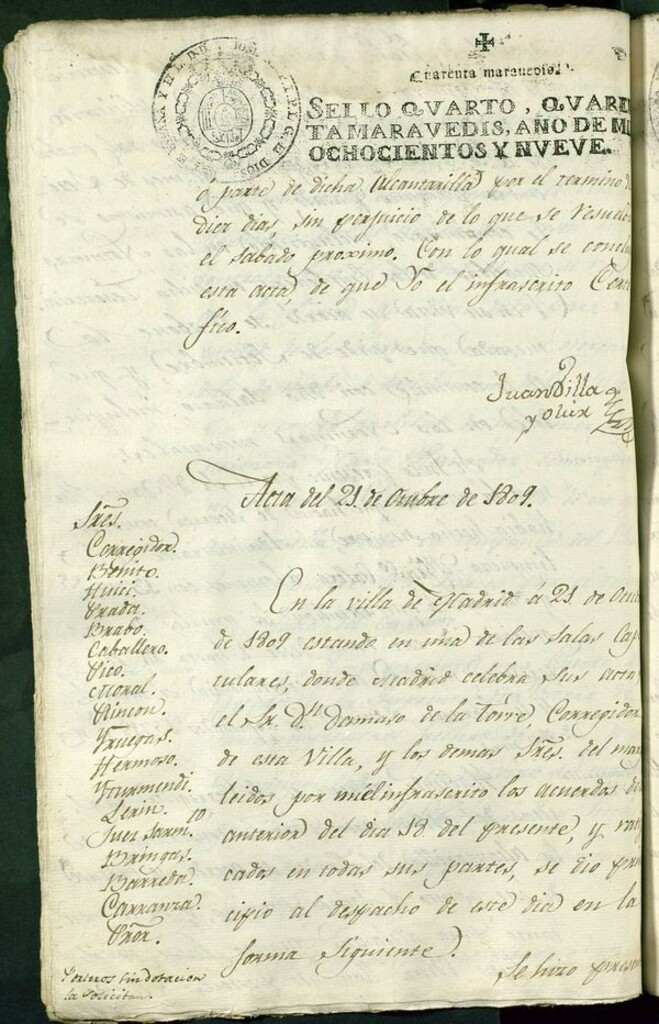 Quarenta maravedis.
SELLO QVARTO, QVAREN
TA MARAVEDIS, AÑO DE MI
OCHOCIENTOS Y NVEVE.
ó parte de dicha Alcantarilla por el termino
diez dias, sin perjuicio de lo que se resuelb
el sabado proximo. Con lo qual se conclu
esta acta, de que Yo el infrascrito Certi
fico.
Juan Villa
y Olier
Acta del 21 de Octubre de 1809.
Sres.
Corregidor.
Benito.
Huici.
Prada.
Brabo.
Caballero.
Pico.
Moral.
Rincon.
Yruegas.
Hermoso.
Yturmendi.
Lerin.
Juez Sarm.to
Bringas.
Barreda.
Carranza.
Pror.
En la villa de Madrid á 21 de Octu
de 1809 estando en una de las Salas Capi
tulares, donde Madrid celebra sus acta
el Sr. Dn. Damaso de la Torre, Corregidor
de esta Villa, y los demas Sres. del mar
leidos por mi el infrascrito los acuerdos del
anterior del dia 18 del presente, y rati
cados en todas sus partes, se dio prin
cipio al despacho de este dia en la
forma siguiente.
Se hizo presen
Porteros sin dotacion
la solicitan.